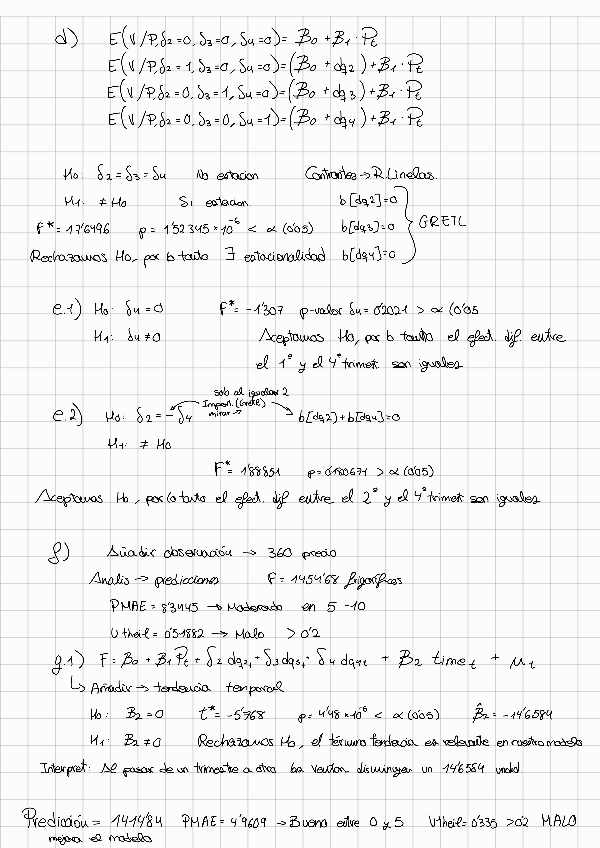 d) E(V/P, δ2=0, δ3=0, δ4=0) = B0 + B1 · Pt
E(V/P, δ2=1, δ3=0, δ4=0) = (B0 + dq2) + B1 · Pt
E(V/P, δ2=0, δ3=1, δ4=0) = (B0 + dq3) + B1 · Pt
E(V/P, δ2=0, δ3=0, δ4=1) = (B0 + dq4) + B1 · Pt
H0: δ2=δ3=δ4 No estacion Contrastes → R. Lineales.
H1: ≠ H0 Si estacion b[dq2]=0
F* = 17'6496 p = 1'52345*10^-6 < α (0'05) b[dq3]=0 GRETL
Rechazamos H0, por lo tanto ∃ estacionalidad b[dq4]=0
e.1) H0: δ4=0 F* = -1'307 p-valor δ4 = 0'2021 > α (0'05
H1: δ4≠0 Aceptamos H0, por lo tanto el efect. dif. entre
el 1º y el 4º trimest. son iguales
solo al igualar 2
e.2) H0: δ2 = -δ4 Import. (Gretl) mirar → b[dq2]+b[dq4]=0
H1: ≠ H0
F* = 1'88851 p=0'180671 > α (0'05)
Aceptamos H0, por lo tanto el efect. dif entre el 2º y el 4º trimest son iguales
f) Añadir observación → 360 precio
Analisis → predicciones F = 1454'68 frigoríficos
PMAE = 8'3445 → Moderado en 5 -10
U theil = 0'51882 → Malo > 0'2
g.1) F = B0 + B1 Pt + δ2 dq2t + δ3 dq3t + δ4 dq4t + B2 timet + μt
↳ Añadir → tendencia temporal
H0: B2=0 t* = -5'768 p = 4'48*10^-6 < α (0'05) B̂2 = -14'6584
H1: B2≠0 Rechazamos H0, el término tendencia es relevante en nuestro modelo
Interpret: Al pasar de un trimestre a otro las ventas disminuyen un 14'6584 unid
Predicción = 1414'84 PMAE = 4'9609 → Bueno entre 0 y 5 U theil = 0'335 > 0'2 MALO
mejora el modelo